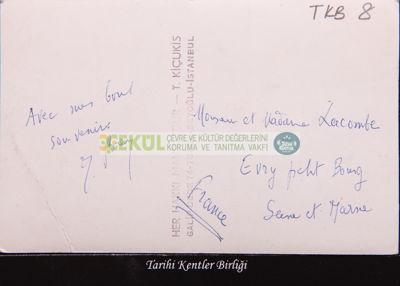 TKB 8
Avec mes bons
souvenirs
Monsieur et Madame Lacombe
Evry petit Bourg
Seine et Marne
France
HER HAKKI MAHFUZDUR — T. KİÇUKİS
GALİ
OĞLU-İSTANBUL
ÇEKÜL ÇEVRE VE KÜLTÜR DEĞERLERİNİ
KORUMA VE TANITMA VAKFI
Tarihi Kentler Birliği